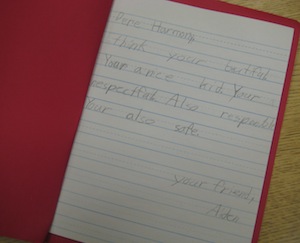 Dere Harmony,
think your beitful
Your a nice kid Your
respectful. Also responsible
Your also safe.
your friend,
Aiden